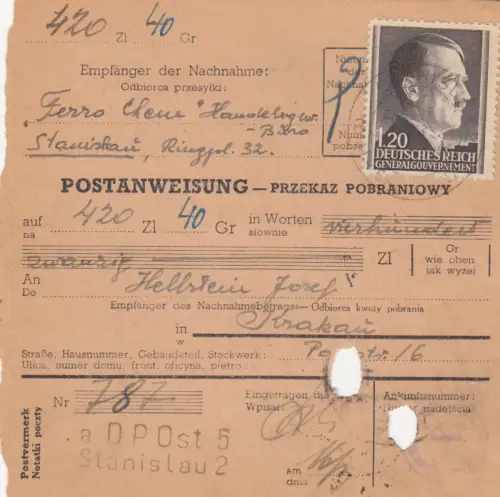 420 Zl 40 Gr
Empfänger der Nachnahme:
Odbiorca przesyłki:
"Ferro Cheme" Handelsgw.-
Büro
Stanislau, Ringpl. 32.
1.20
DEUTSCHES REICH
GENERALGOUVERNEMENT
POSTANWEISUNG — PRZEKAZ POBRANIOWY
auf 420 Zl 40 Gr in Worten vierhundert
na słownie
zwanzig Zl Gr
wie oben
jak wyżej
An Hellstein Josef
Do
Empfänger des Nachnahmebetrags: - Odbiorca kwoty pobrania
in Krakau
w
Straße, Hausnummer, Gebäudeteil, Stockwerk:
Ulica, numer domu, front, oficyna, piętro:
Nr 787
Eingetragen
Wpisan
Ankunftsnummer:
nadejścia
a DPOst 5
Stanislau 2
am
dnia
Postvermerk
Notatki poczty